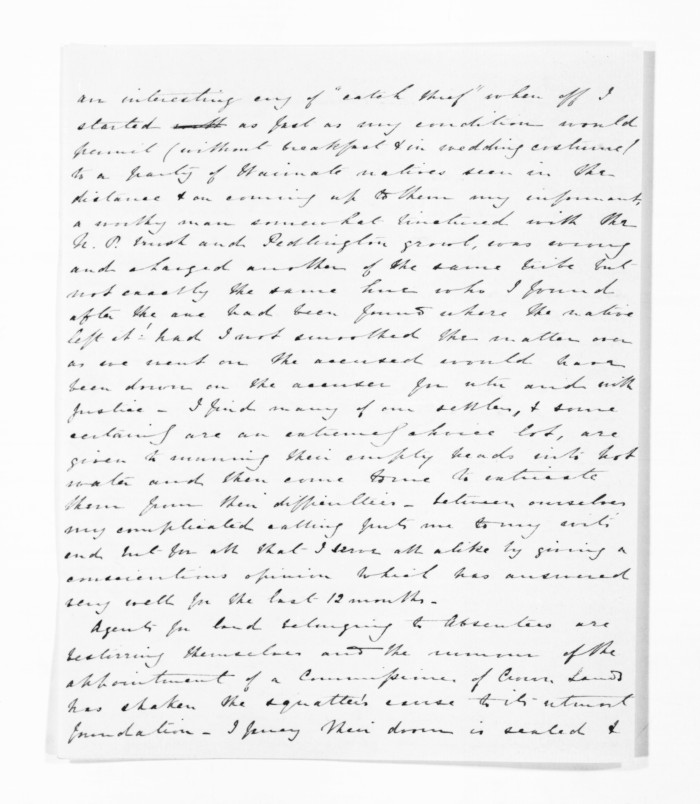 an interesting cry of "catch thief" when off I
started as fast as my condition would
permit (without breakfast & in wedding costume)
to a party of Waimate natives seen in the
distance & on coming up to them my informant,
a worthy man somewhat tinctured with the
N. P. and Pedlington growl, was wrong
and charged another of the same tribe but
not exactly the same hue who I found
after the axe had been found where the native
left it! had I not smoothed the matter over
as we went on the accused would have
been down on the accuser for utu and with
Justice - I find many of our settlers, & some
certainly are an extremely choice lot, are
given to running their empty heads into hot
water and then come to me to extricate
them from their difficulties - between ourselves
my complicated calling puts me to my wits
end but for all that I serve all alike by giving a
conscientious opinion which has answered
very well for the last 12 months -
Agents for land belonging to Absentees are
bestirring themselves and the rumour of the
appointment of a Commissioner of Crown Lands
has shaken the squatters cause to its utmost
foundation - I fancy their doom is sealed &